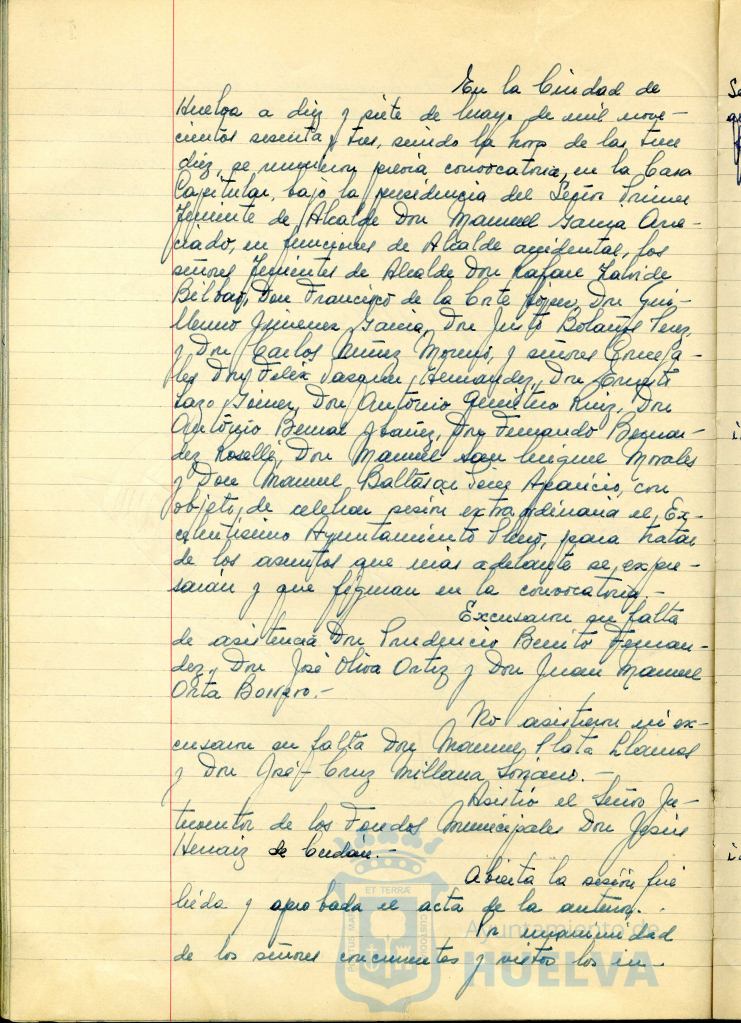 En la Ciudad de
Huelva a diez y siete de Mayo de mil nove-
cientos sesenta y tres, siendo la hora de las trece
diez, se reunieron previa convocatoria, en la Casa
Capitular, bajo la presidencia del Señor Primer
Teniente de Alcalde Don Manuel Garcia
en funciones de Alcalde accidental, los
señores Tenientes de Alcalde Don Rafael
Bilbao, Don Francisco de la Corte López, Don Gui-
llermo Jimenez Garcia, Don Justo Bolaños Perez
y Don Carlos Núñez Moreno, y señores Conceja-
les Don Felix Vazquez Hernandez, Don Ernesto
Lazo Gómez, Don Antonio Quintero Ruiz, Don
Antonio Bernal Ibañez, Don Fernando Bernan-
dez Roselló, Don Manuel San Miguel Morales
y Don Manuel Baltasar Perez Aparicio, con
objeto de celebrar sesión extraordinaria el Ex-
celentísimo Ayuntamiento Pleno, para tratar
de los asuntos que más adelante se expre-
sarán y que figuran en la convocatoria.-
Excusaron su falta
de asistencia Don Prudencio Benito Fernan-
dez, Don José Oliva Ortiz y Don Juan Manuel
Orta Borrero.-
No asistieron ni ex-
cusaron su falta Don Manuel Plata Llamas
y Don José-Cruz Millana Soriano.-
Asistió el Señor In-
terventor de los Fondos Municipales Don Jesús
Hernaiz de
Abierta la sesión fué
leída y aprobada el acta de la anterior.
Por unanimidad
de los señores concurrentes y vistos los in-
ET TERRÆ
PORTUS MARIS
CUSTODIA
Ayuntamiento de
HUELVA